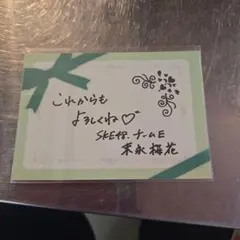 これからも
よろしくね♡
SKE48. チームE
末永桜花